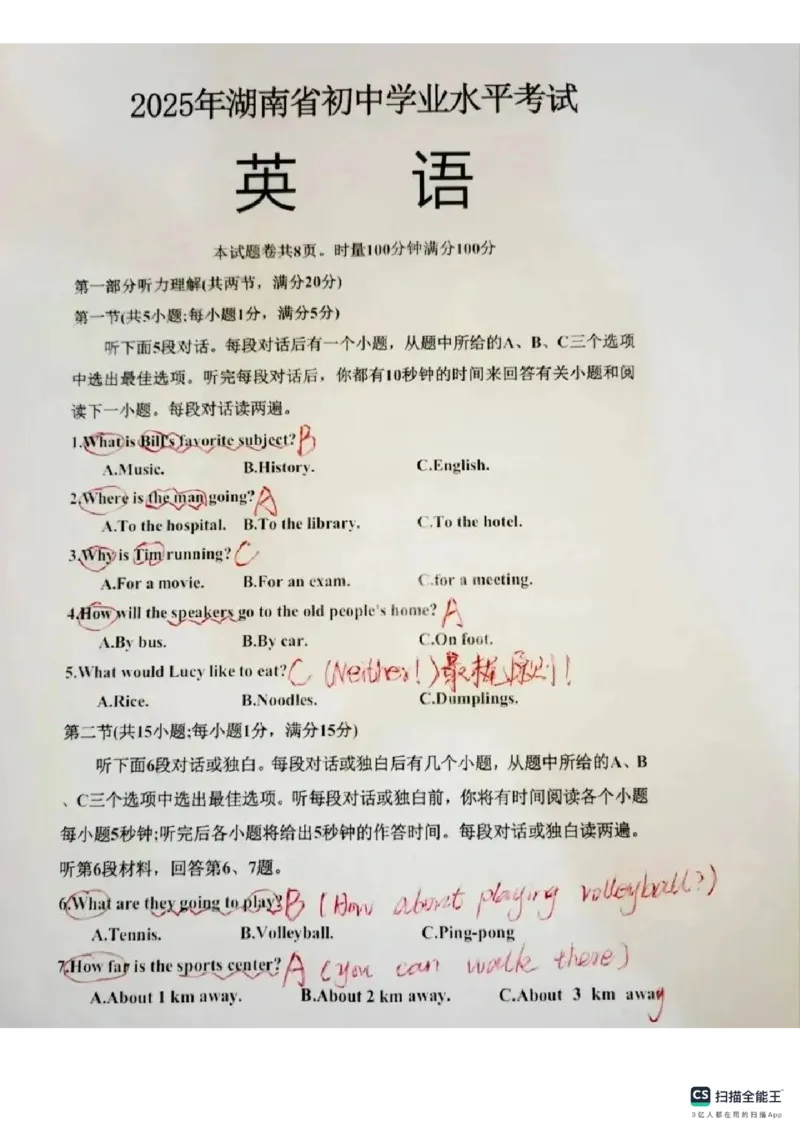 2025年湖南省初中学业水平考试
英 语
本试题卷共8页。时量100分钟满分100分
第一部分听力理解(共两节，满分20分)
第一节(共5小题;每小题1分，满分5分)
听下面5段对话。每段对话后有一个小题，从题中所给的A、B、C三个选项
中选出最佳选项。听完每段对话后，你都有10秒钟的时间来回答有关小题和阅
读下一小题。每段对话读两遍。
1.What is Bill's favorite subject? B
A.Music. B.History. C.English.
2.Where is the man going? A
A.To the hospital. B.To the library. C.To the hotel.
3.Why is Tim running? C
A.For a movie. B.For an exam. C.for a meeting.
4.How will the speakers go to the old people's home? A
A.By bus. B.By car. C.On foot.
5.What would Lucy like to eat? C (Neither!)最末尾原则!
A.Rice. B.Noodles. C.Dumplings.
第二节(共15小题;每小题1分，满分15分)
听下面6段对话或独白。每段对话或独白后有几个小题，从题中所给的A、B
、C三个选项中选出最佳选项。听每段对话或独白前，你将有时间阅读各个小题
每小题5秒钟;听完后各小题将给出5秒钟的作答时间。每段对话或独白读两遍。
听第6段材料，回答第6、7题。
6.What are they going to play? B (How about playing volleyball?)
A.Tennis. B.Volleyball. C.Ping-pong
7.How far is the sports center? A (you can walk there)
A.About 1 km away. B.About 2 km away. C.About 3 km away
CS 扫描全能王
3亿人都在用的扫描App